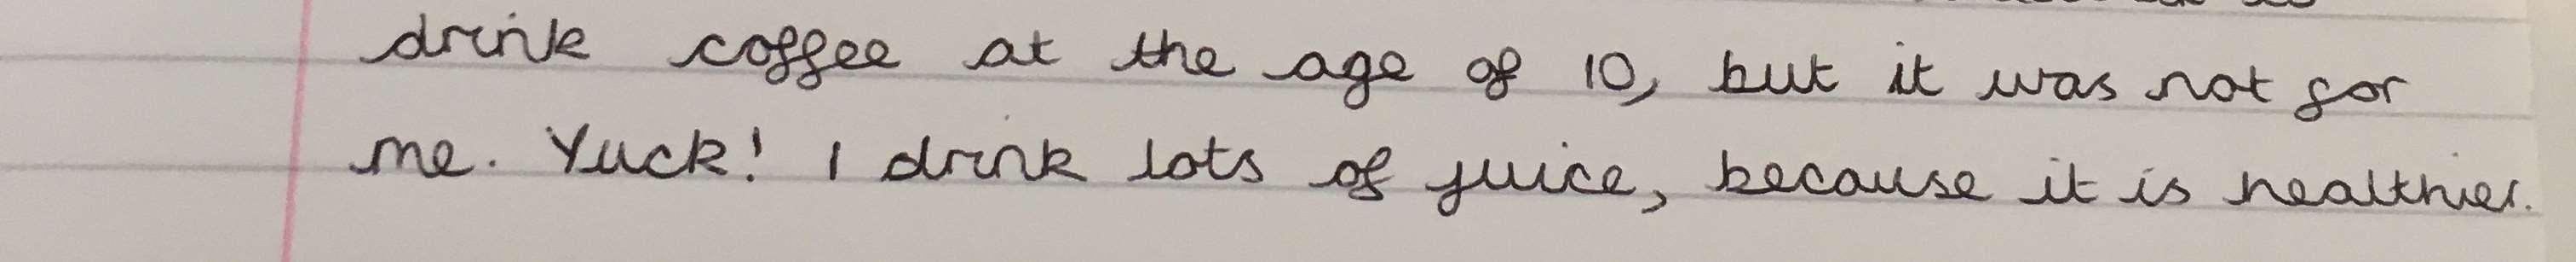 drink coffee at the age of 10, but it was not for
me. Yuck! I drink lots of juice, because it is healthier.